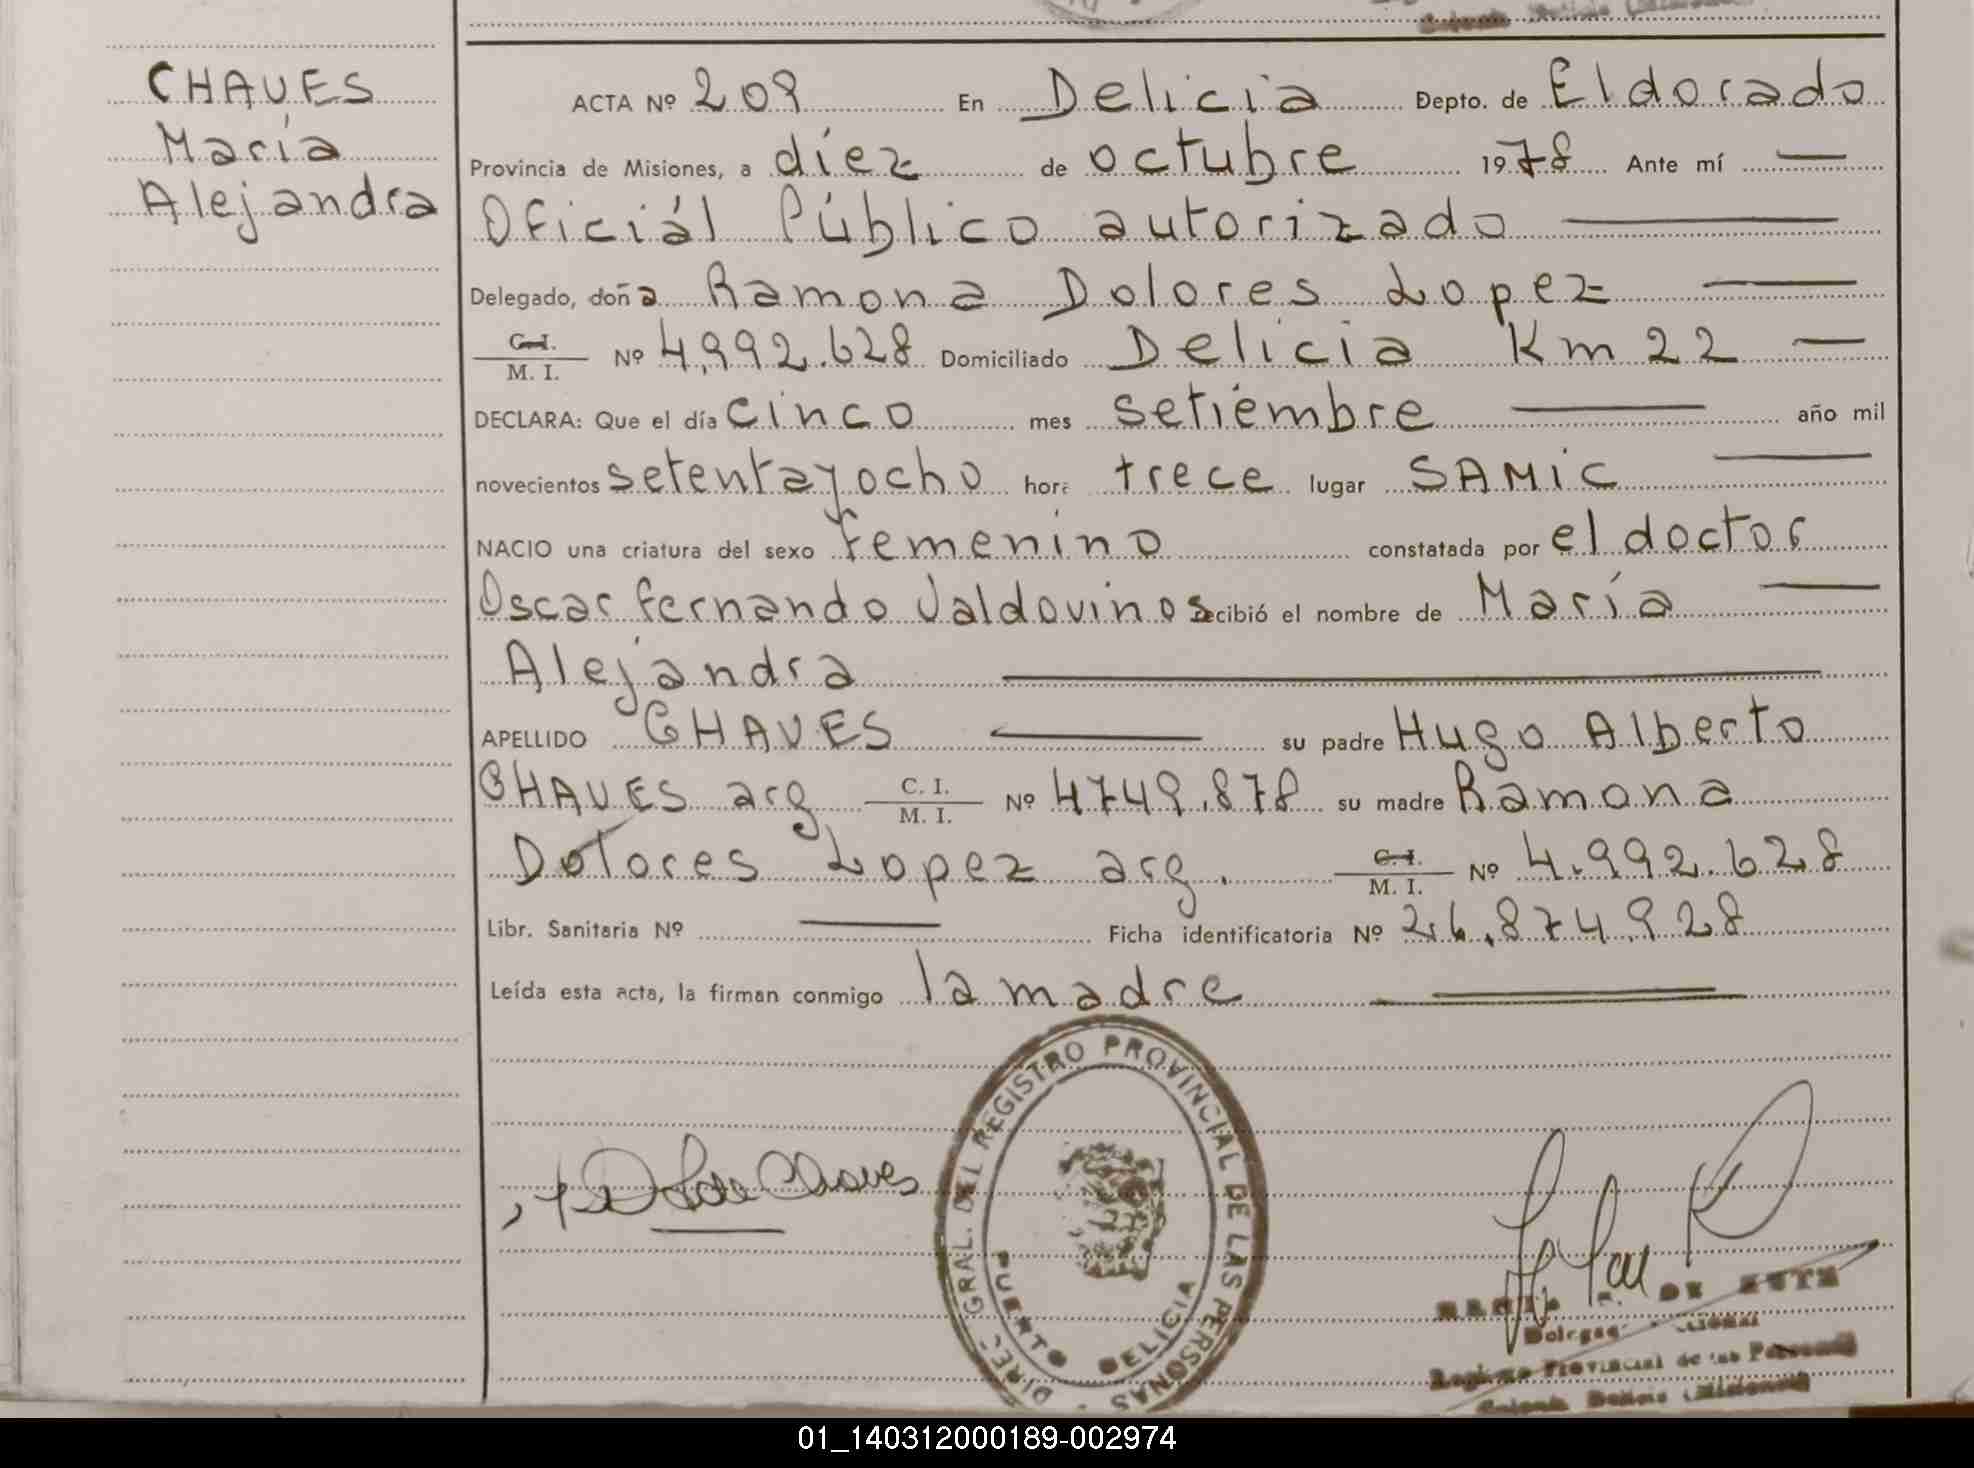 CHAVES
María
Alejandra
ACTA Nº 209 En Delicia Depto. de Eldorado
Provincia de Misiones, a diez de octubre 1978 Ante mí —
Oficiál Público autorizado
Delegado, doña Ramona Dolores Lopez
C.I. / M. I. Nº 4,992.628 Domiciliado Delicia Km 22 —
DECLARA: Que el día cinco mes setiembre año mil
novecientos setentayocho hora trece lugar SAMIC
NACIO una criatura del sexo femenino constatada por el doctor
Oscar fernando Valdovinos recibió el nombre de María
Alejandra
APELLIDO CHAVES su padre Hugo Alberto
CHAVES arg C. I. / M. I. Nº 4749.878 su madre Ramona
Dolores Lopez arg. C.I. / M. I. Nº 4.992.628
Libr. Sanitaria Nº — Ficha identificatoria Nº 26.874.928
Leída esta acta, la firman conmigo la madre
DIREC. GRAL. DEL REGISTRO PROVINCIAL DE LAS PERSONAS
PUERTO DELICIA
Chaves
DE
Registro Provincial de las Personas
Colonia Delicia (Misiones)
01_140312000189-002974